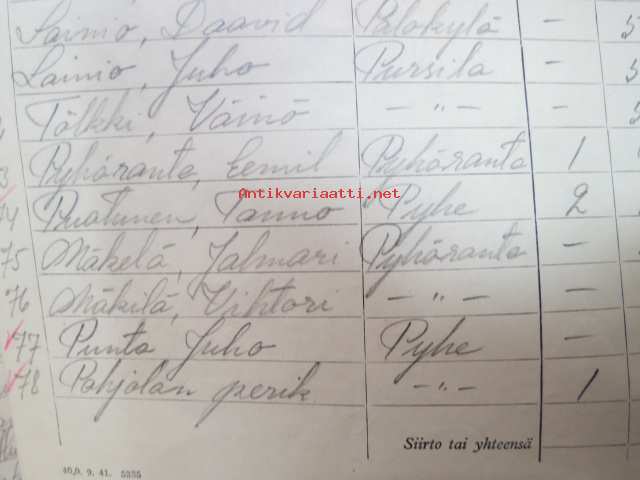 Lainio, Daavid Palokylä –
Lainio, Juho Pursila –
Tölkki, Väinö – " – –
Pyhäranta, Eemil Pyhäranta 1
74 Ruohunen, Tauno Pyhe 2
75 Mäkelä, Jalmari Pyhäranta –
76 Mäkilä, Vihtori – " – –
77 Punta Juho Pyhe –
78 Pohjolan perik – " – 1
Antikvariaatti.net
Siirto tai yhteensä
40,0. 9. 41. 5335